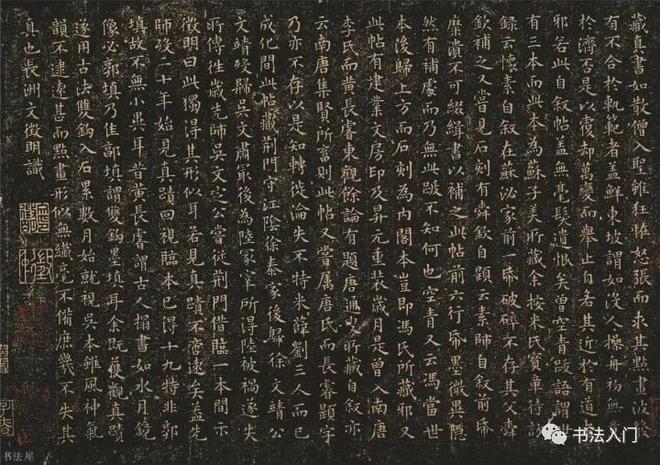 藏真書如散僧入聖雖狂怪怒張而求其點畫波發
有不合於軌範者蓋鮮東坡謂如沒人操舟初無意
於濟否是以覆卻萬變而舉止自若其近於有道者
邪若此自敘帖蓋無毫髮遺恨矣曾空青跋語謂世
有三本而此本為蘇子美所藏余按米氏寶章待訪
錄云懷素自敘在蘇泌家前一紙破碎不存其父舜
欽補之又嘗見石刻有舜欽自題云素師自敘前紙
糜潰不可綴緝書以補之此帖前六行紙墨微異隱
然有補處而乃無此跋不知何也空青又云馮當世
本後歸上方而石刻為內閣本豈即馮氏所藏邪又
此帖有建業文房印及昇元重裝歲月是曾入南唐
李氏而黃長睿東觀餘論有題唐通叟所藏自敘亦
云南唐集賢所蓄則此帖又嘗屬唐氏而長睿題字
乃亦不存以是知轉徙淪失不特米薛劉三人而已
成化間此帖藏荊門守江陰徐泰家後歸徐文靖公
文靖歿歸吳文肅最後為陸冢宰所得陸被禍遂失
所傳往歲先師吳文定公嘗從荊門借臨一本間示
徵明曰此獨得其形似耳若見真蹟不啻遠矣蓋先
師歿二十年始見真蹟回視臨本已得十九特非郭
填故不無小異耳昔黃長睿謂古人搨書如水月鏡
像必郭填乃佳郭填謂雙鉤墨填耳余既獲觀真蹟
遂用古法雙鉤入石累數月始就視吳本雖風神氣
韻不逮遠甚而點畫形似無纖毫不備庶幾不失其
真也長洲文徵明識
书法屋
书法入门